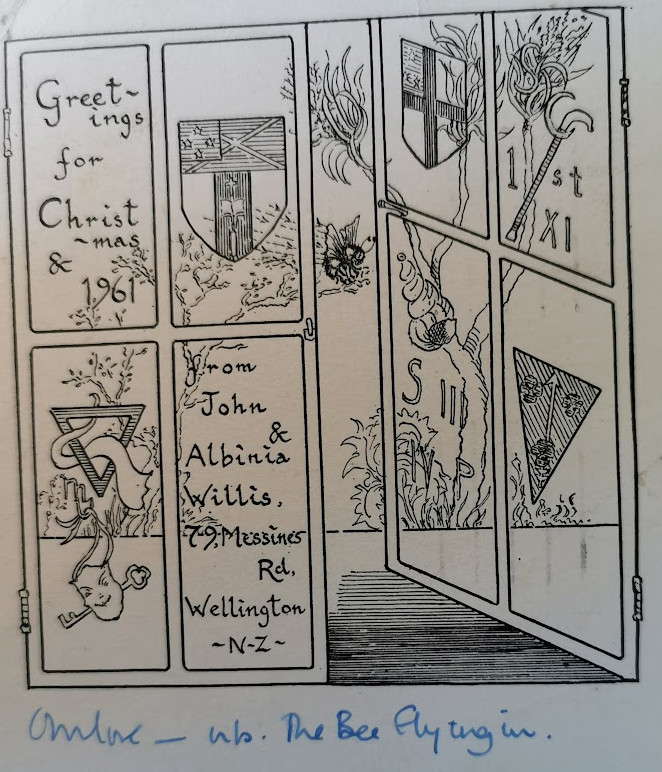 Greet-
ings
for
Christ
-mas
&
1961
From
John
&
Albinia
Willis,
79, Messines
Rd,
Wellington
~N-Z~
1st
XI
S III
nb. The Bee Flying in.